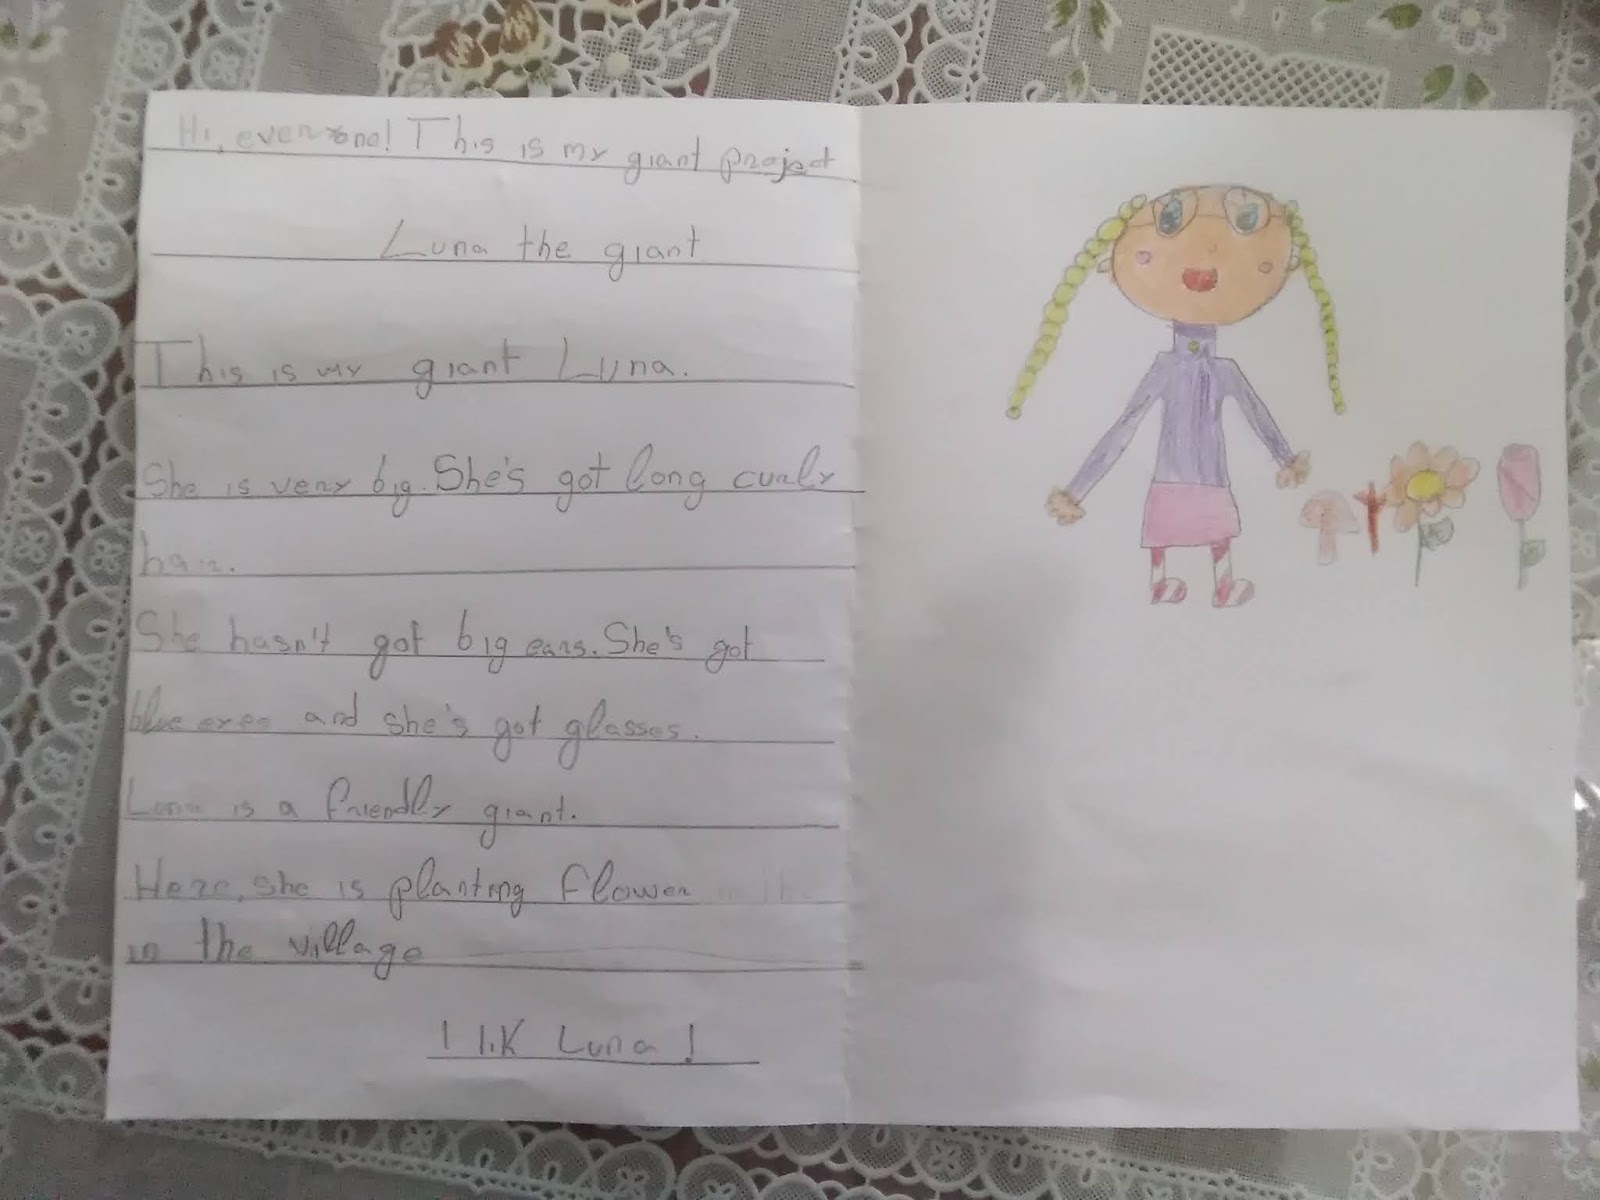 Hi, everyone! This is my giant project
Luna the giant
This is my giant Luna.
She is very big. She's got long curly
hair.
She hasn't got big ears. She's got
blue eyes and she's got glasses.
Luna is a friendly giant.
Here, she is planting flower
in the village
I lik Luna!